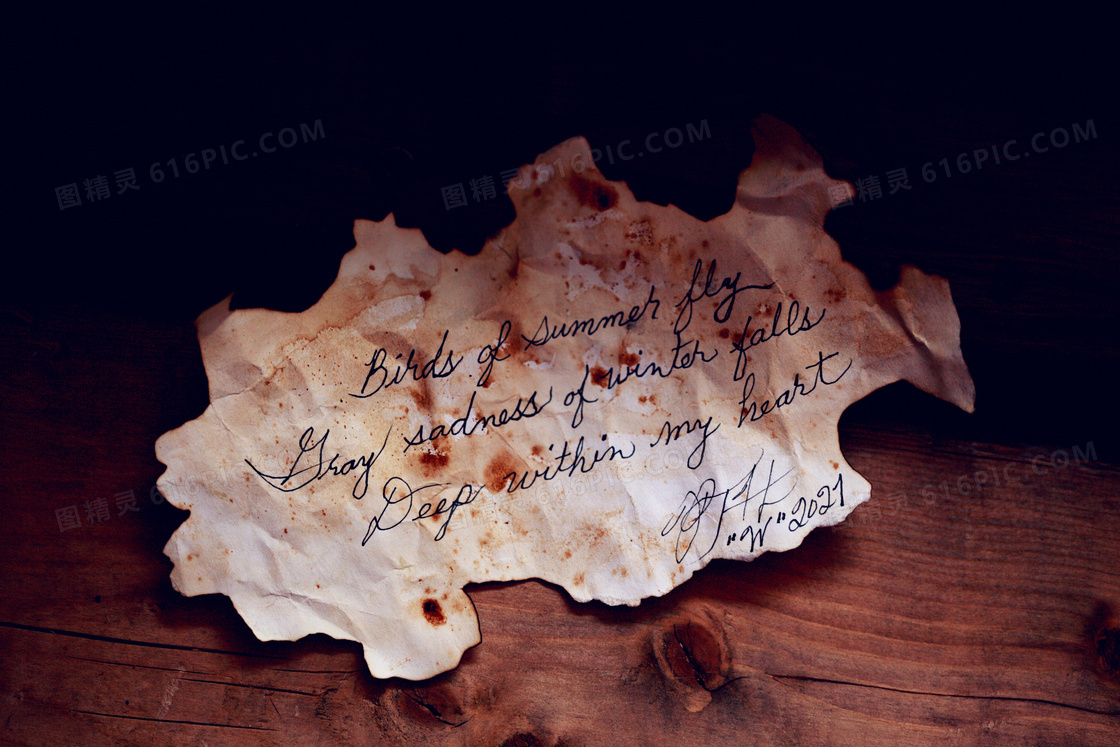 图精灵 616PIC.COM
图精灵 616PIC.COM
图精灵 616PIC.COM
Birds of summer fly
Gray sadness of winter falls
Deep within my heart
"W" 2021
图精灵 616PIC.COM
图精灵 616PIC.COM
图精灵 616PIC.COM